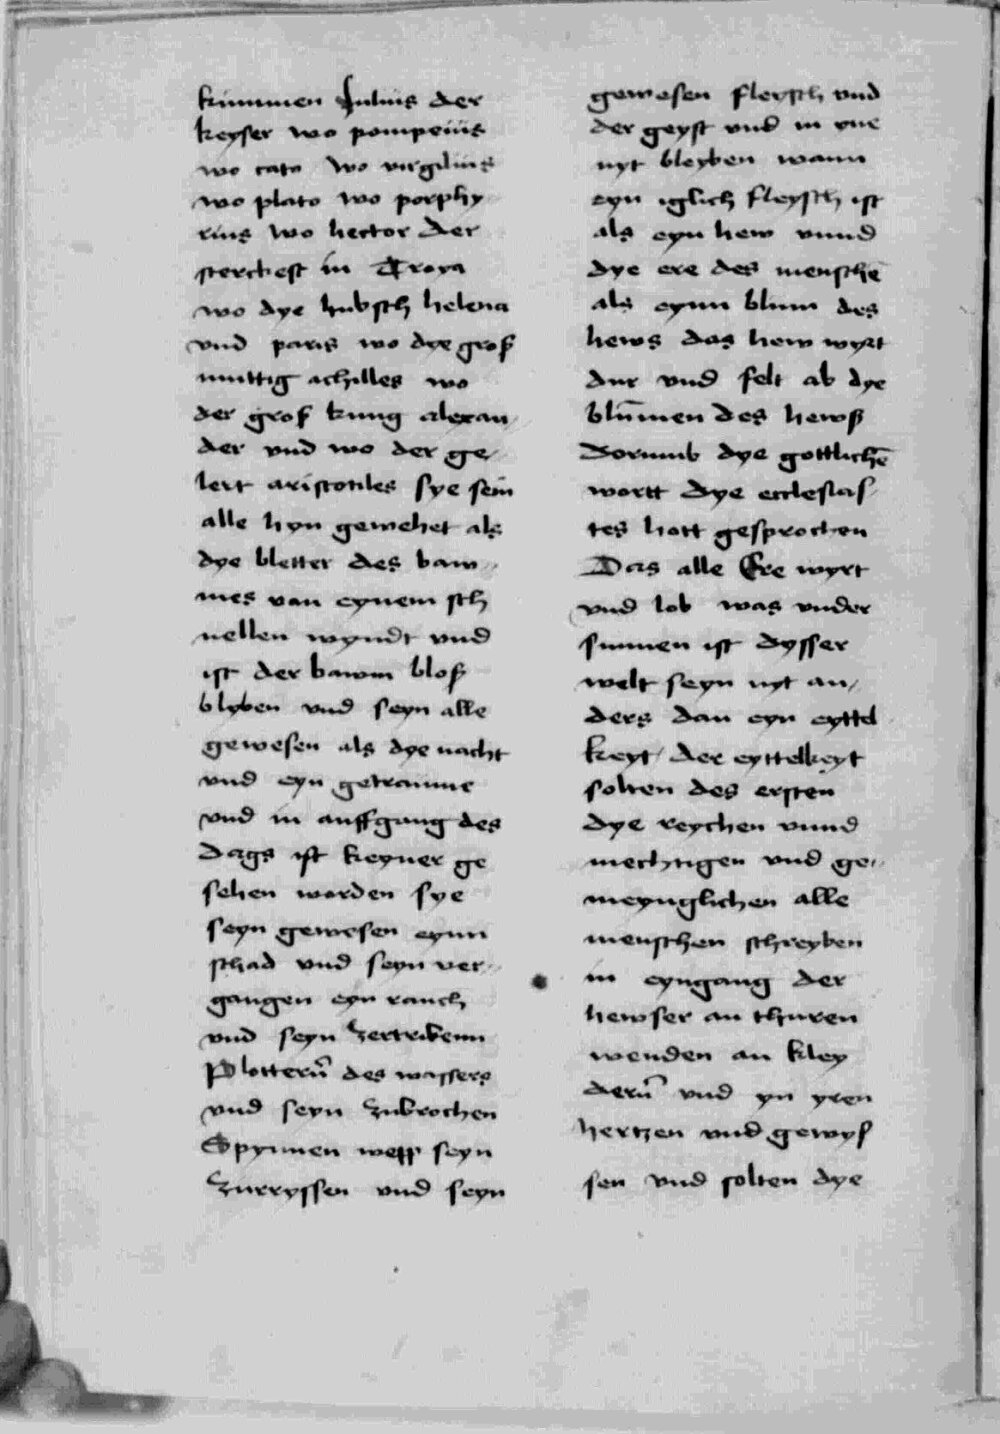 kummen Julius der
keyser wo pompeius
wo cato wo virgilius
wo plato wo porphy
rius wo hector der
sterckest in Troya
wo dye hubsch helena
vnd paris wo dye groß
muttig achilles wo
der groß kung alexan/
der vnd wo der ge/
lert aristotiles sye sein
alle hyn gewehet als
dye bletter des baw/
mes van eynem sch
nellen wyndt vnd
ist der bawm bloß
blyben vnd seyn alle
gewesen als dye nacht
vnd eyn getraume
vnd in auffgang des
dags ist keyner ge
sehen worden sye
seyn gewesen eynn
schad vnd seyn ver/
gangen eyn rauch
vnd seyn zertribenn
Plottern̄ des wassers
vnd seyn zubrochen
Spynnen wepp seyn
zurryssen vnd seyn
gewesen fleysch vnd
der geyst vnd in yne
nyt bleyben wann
eyn iglich fleysch ist
als eyn hew vnnd
dye ere des menschē
als eynn blum des
hews das hew wyrt
dur vnd felt ab dye
blūmen des hewß
Dorumb dye gottlichē
wortt dye ecclesias/
tes hott gesprochen
Das alle Ere wyrt
vnd lob was vnder
sunnen ist dysser
welt seyn nyt an/
ders dan eyn eyttel
keyt der eyttelkeyt
solten des ersten
dye reychen vnnd
mechtigen vnd ge/
meynglichen alle
menschen schreyben
in eyngang der
hewser an thuren
wenden an kley
dern̄ vnd yn yren
hertzen vnd gewyß
sen vnd solten dye